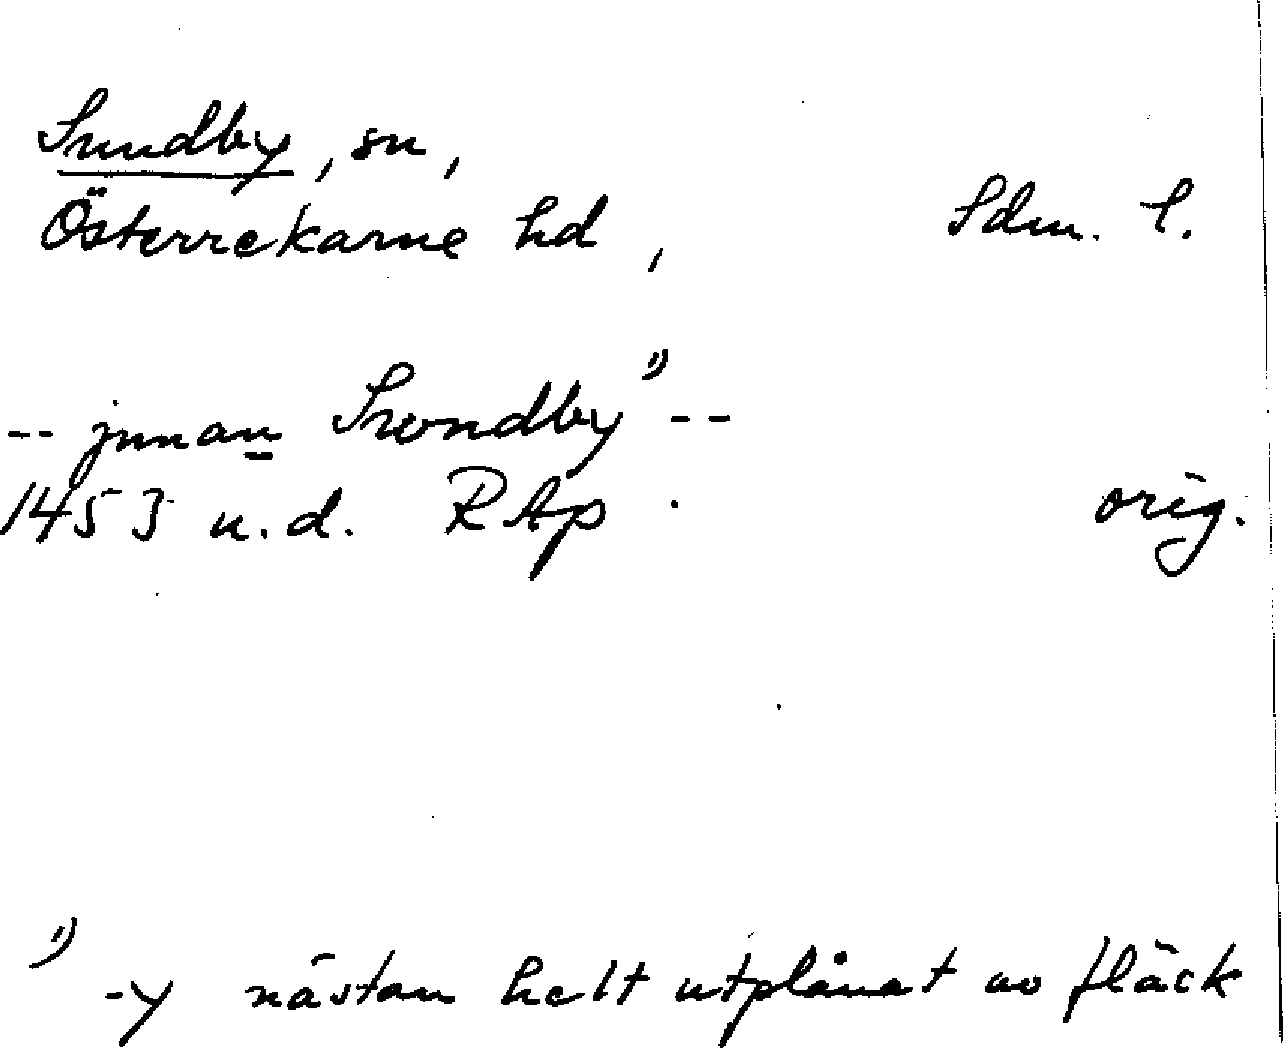 Sundby, sn,
Österrekarne hd, Sdm. l.
-- jnnan Swndby 1) --
1453 u.d. RAp. orig.
1) -y nästan helt utplånat av fläck